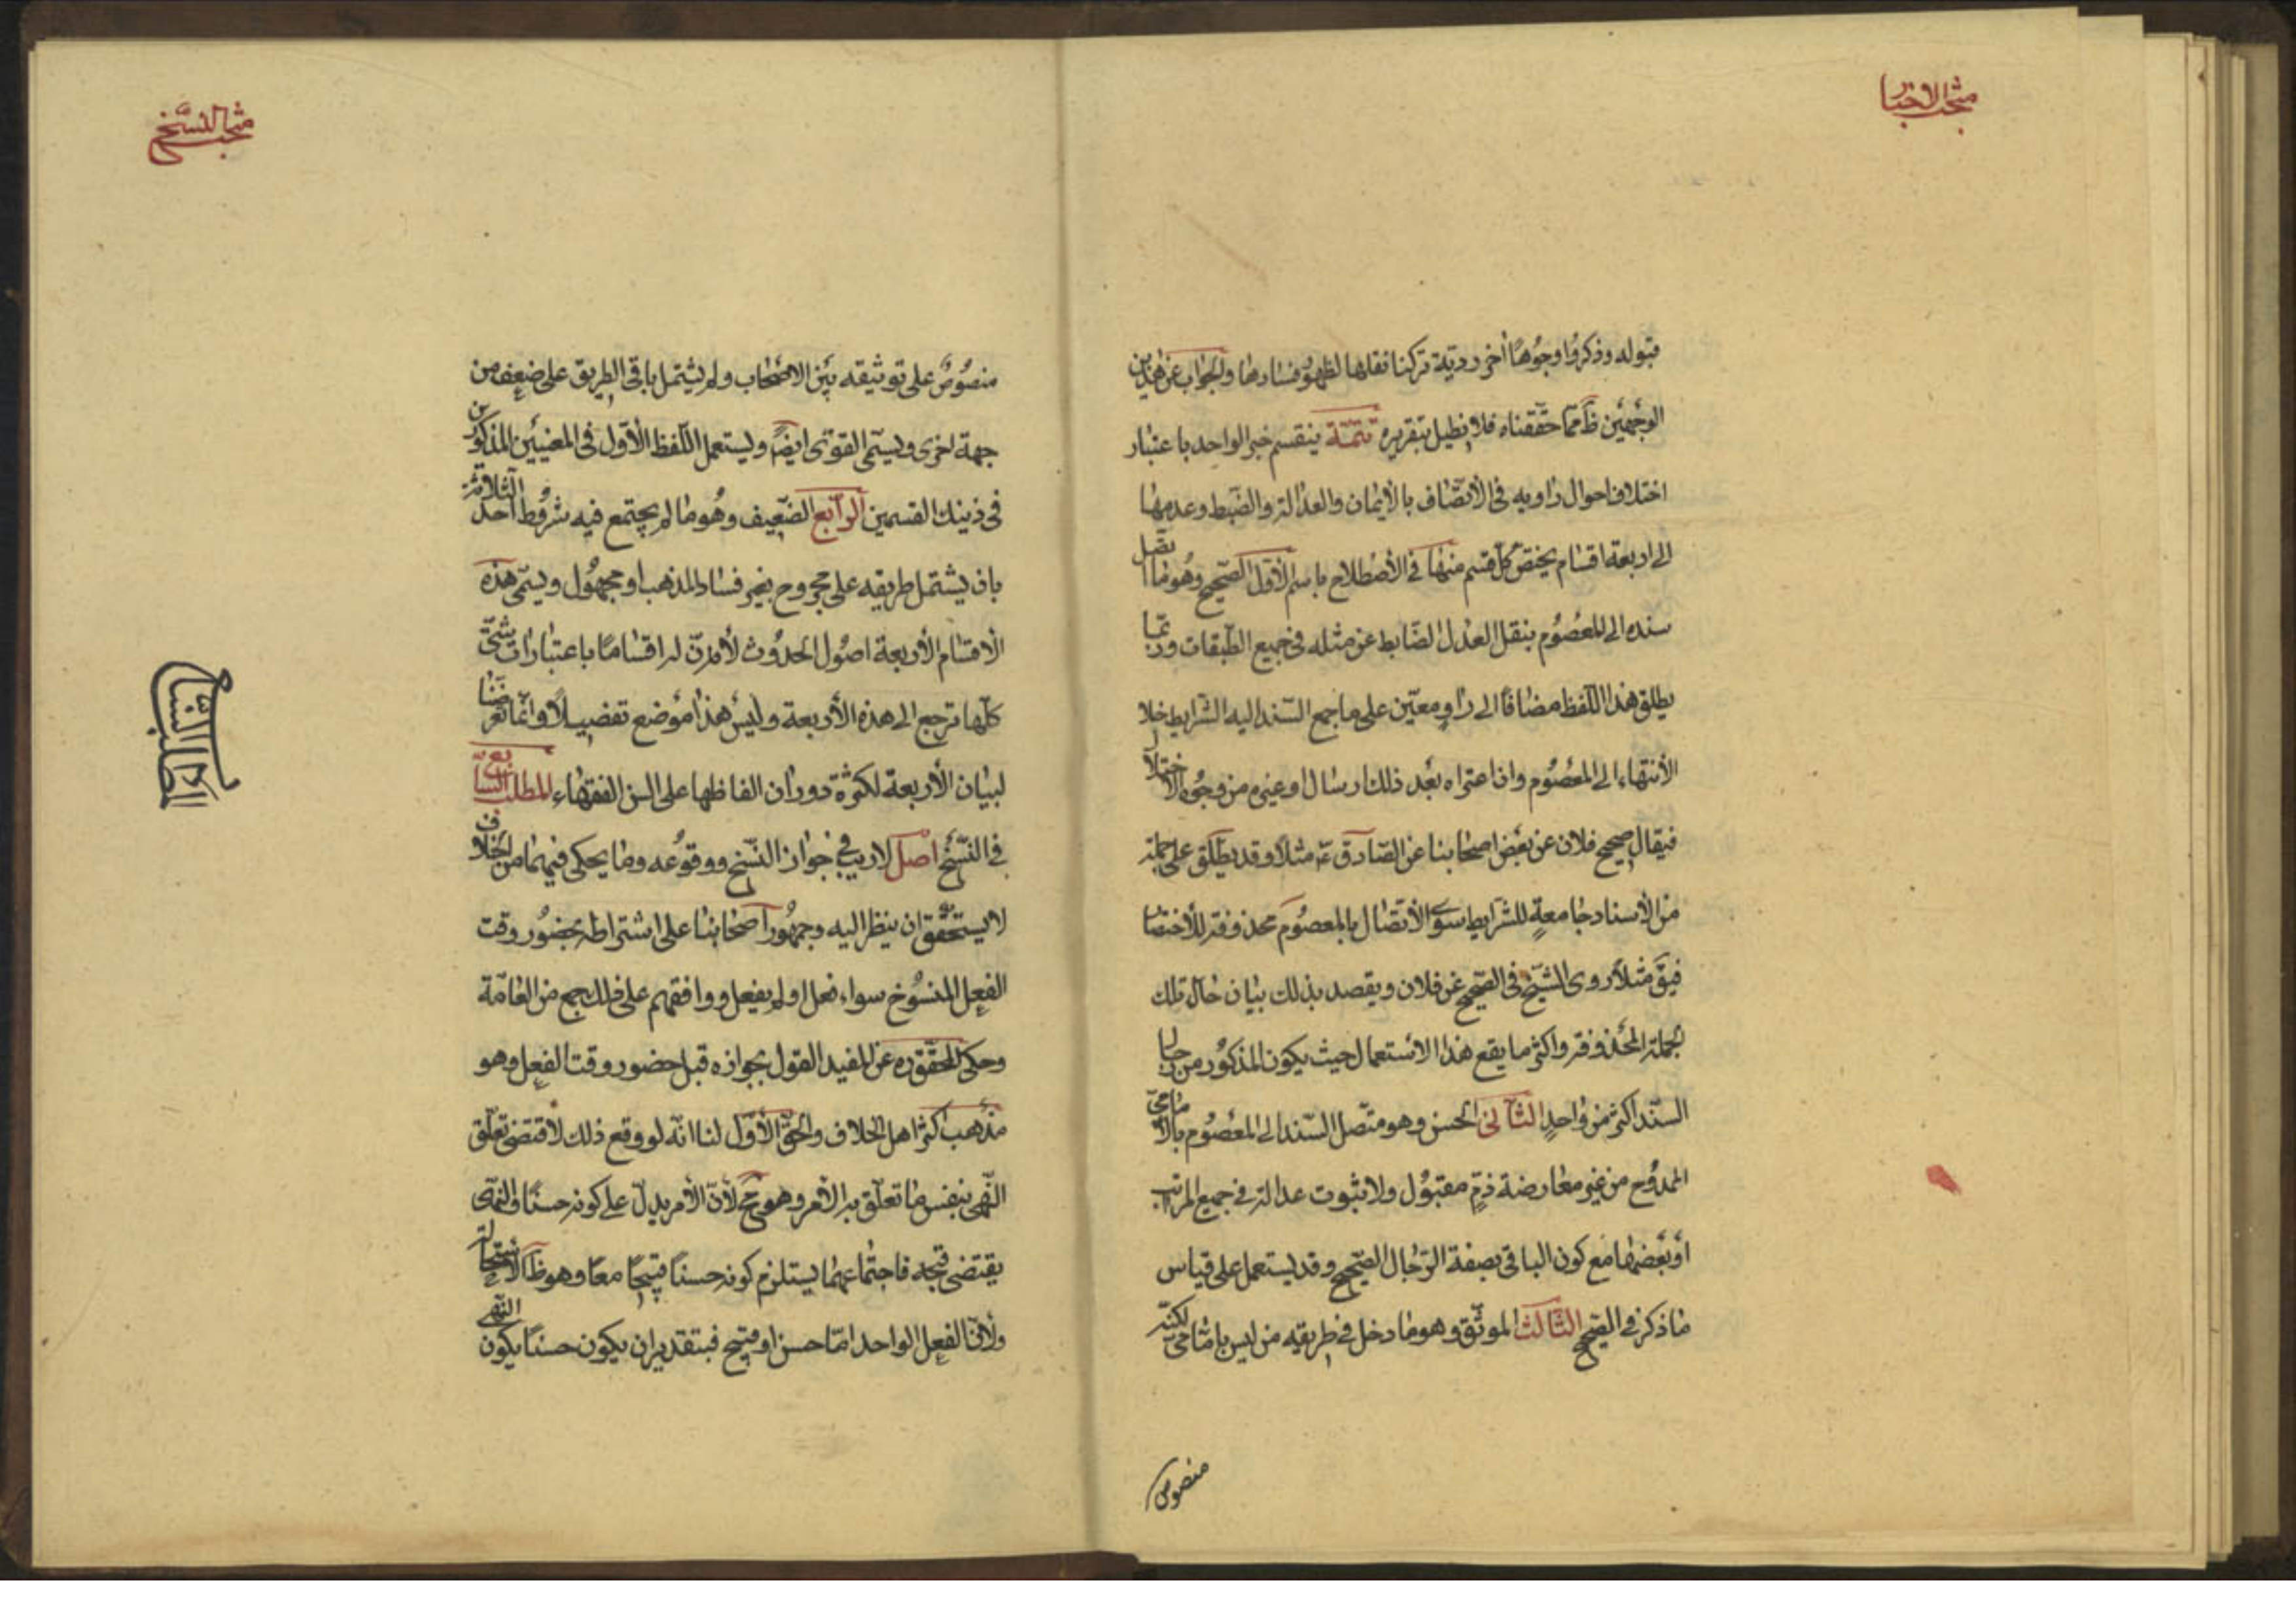 مبحث الاخبار
قبوله وذكروا وجوهًا أخر رديّة تركنا نقلها لظهور فسادها والجواب عن هٰذين
الوجهين ظ ممّا حقّقناه فلا نطيل بتقريره تتمّة ينقسم خبر الواحد باعتبار
اختلاف احوال راويه في الأتّصاف بالأيمان والعدالة والضّبط وعدمها
الى اربعة اقسام يختصّ كلّ قسم منها في الأصطلاح باسم الأوّل الصّحيح وهو ما اتّصل
سنده الى المعصوم بنقل العدل الضّابط عن مثله في جميع الطّبقات وربّما
يطلق هذا اللّفظ مضافًا الى راوٍ معيّن على ما جمع السّند اليه الشّرايط خلا
الأنتهاء الى المعصوم وان اعتراه بعد ذلك ارسال او غيره من وجوه الاختلال
فيقال صحيح فلان عن بعض اصحابنا عن الصّادق ع مثلاً وقد يطلق على جملة
من الأسناد جامعةٍ للشرايط سوى الأتّصال بالمعصوم محذوفة للأختصا
فيق مثلاً روى الشّيخ في الصّحيح عن فلان ويقصد بذلك بيان حال تلك
الجملة المحذوفة واكثر ما يقع هذا الاستعمال حيث يكون المذكور من رجال
السّند اكثر من واحدٍ الثّاني الحسن وهو متّصل السّند الى المعصوم بالاماميّ
الممدوح من غير معارضة ذمٍّ مقبول ولا ثبوت عدالة في جميع المراتب
أو بعضها مع كون الباقي بصفة الرّجال الصّحيح وقد يستعمل على قياس
ما ذكر في الصّحيح الثّالث الموثّق وهو ما دخل في طريقه من ليس باماميّ لكنّه
منصوص
مبحث النّسخ
منصوصٌ على توثيقه بين الاصحاب ولم يشتمل باقي الطريق على ضعف من
جهة اخرى ويسمّى القوى ايضًا ويستعمل اللّفظ الأوّل في المعنيين المذكورين
في ذينك القسمين الرّابع الضّعيف وهو ما لم يجتمع فيه شروط احد الثّلاثة
بان يشتمل طريقه على مجروح بغير فساد المذهب او مجهول ويسمّى هذه
الأقسام الأربعة اصول الحدوث لأنّ له اقسامًا باعتبارات شتّى
كلّها ترجع الى هذه الأربعة وليس هذا موضع تفصيلاً وانّما تعرّضنا
لبيان الأربعة لكثرة دوران الفاظها على السن الفقهاء المطلب السّابع
في النّسخ اصل لا ريب في جواز النّسخ ووقوعه وما يحكى فيهما من الخلاف
لا يستحقّ ان ينظر اليه وجمهور اصحابنا على اشتراطه بحضور وقت
الفعل المنسوخ سواء فعل اولم يفعل ووافقهم على ذلك جمع من العامّة
وحكى المحقّق ره عن المفيد القول بجوازه قبل حضور وقت الفعل وهو
مذهب اكثر اهل الخلاف والحقّ الأوّل لنا انّه لو وقع ذلك لاقتضى تعلّق
النّهى بنفس ما تعلّق به الأمر وهو مح لأنّ الأمر يدلّ على كونه حسنًا والنّهى
يقتضى قبحه فاجتماعهما يستلزم كونه حسنًا قبيحًا معًا وهو ظ الاستحالة
ولأنّ الفعل الواحد امّا حسن او قبيح فبتقدير ان يكون حسنًا يكون النّهى
المطلب السّابع